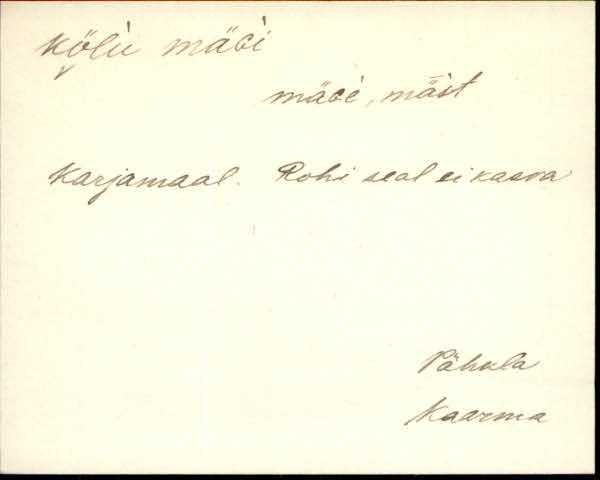 Kölu mäɢi
mäɢi, mäst
Karjamaal. Rohi seal ei kasva
Pähkla
Kaarma